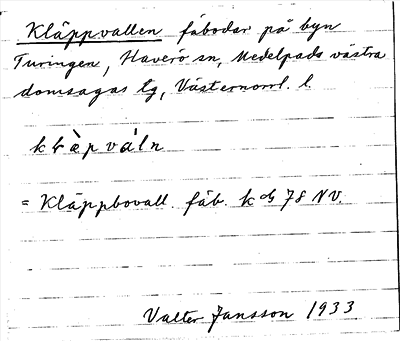 Kläppvallen fäbodar på byn
Turingen, Haverö sn, Medelpads västra
domsagas tg, Västernorrl. l.
klæ̀pvál̥n
= Kläppbovall. fäb. k bl 78 NV.
Valter Jansson 1933